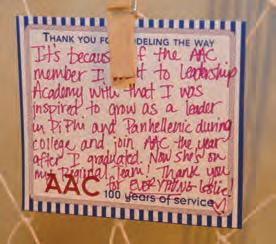 THANK YOU FO DELING THE WAY
It's becaus f the AAC
member I t to Leadership
Academy with that I was
inspired to grow as a leader
in Pi Phi and Panhellenic during
college and join AAC the year
after I graduated. Now she's on
my Regional Team! Thank you
AAC for EVERYTHING Leslie!
100 years of service